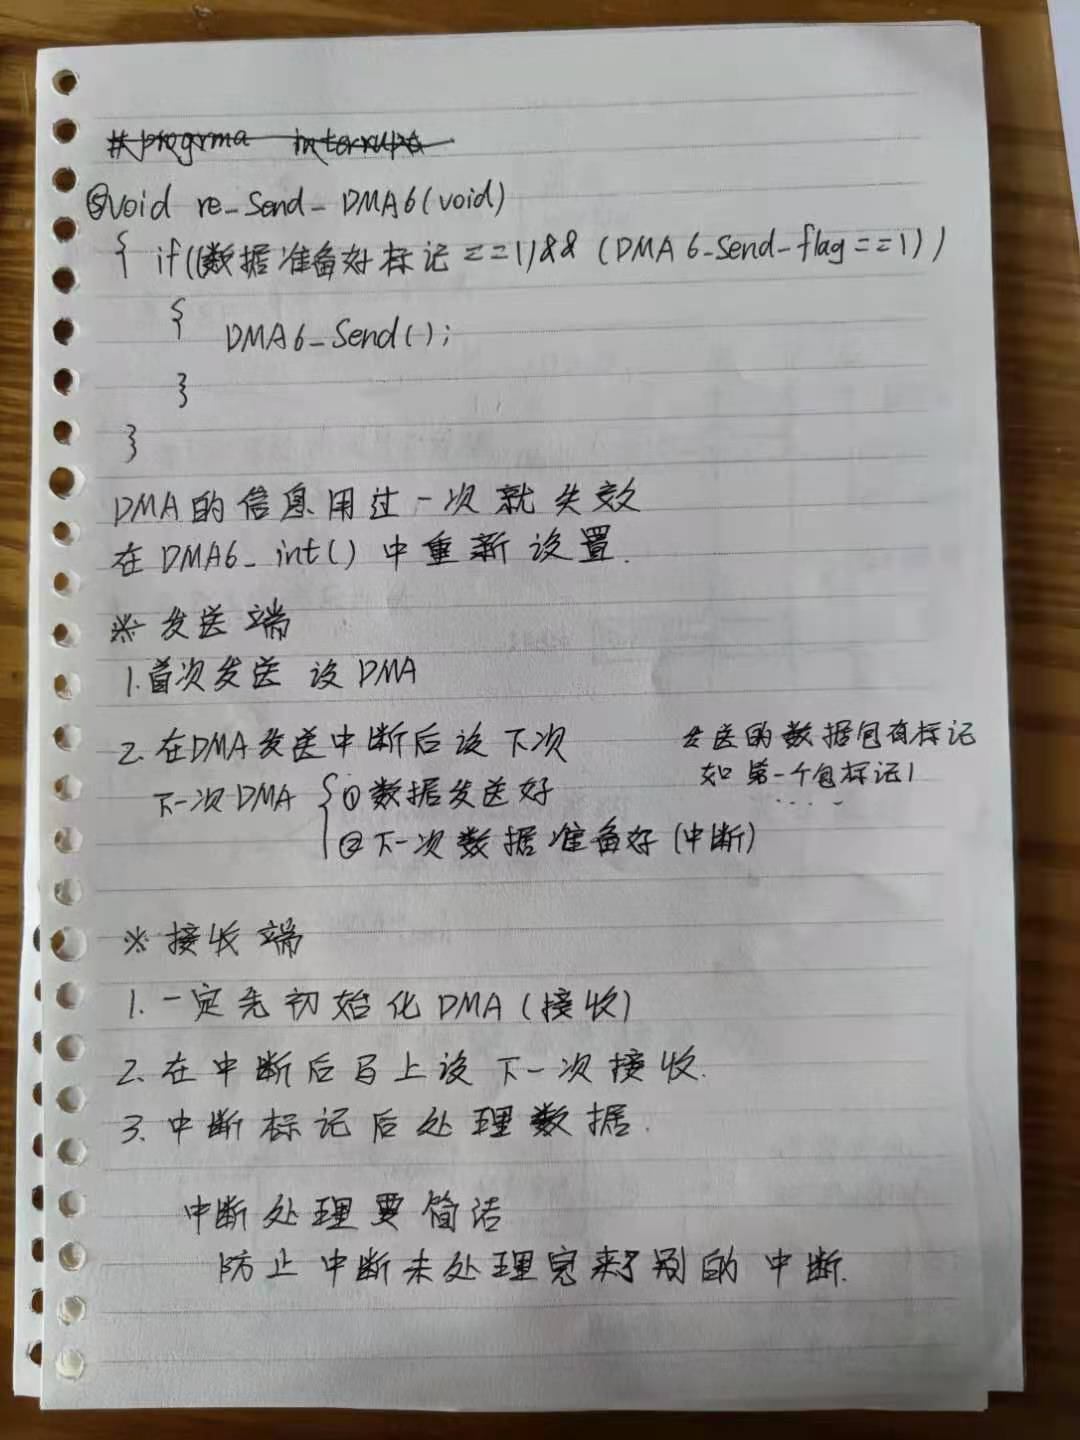 #progrma interrupt
⑤void re_Send_DMA6(void)
{ if((数据准备好标记==1)&&(DMA6_Send_flag==1))
{
DMA6_Send();
}
}
DMA的信息用过一次就失效
在DMA6_int()中重新设置.
※发送端
1.首次发送 设DMA
2.在DMA发送中断后设下次
发送的数据包有标记
如 第一个包标记1
....
下一次DMA {①数据发送好
②下一次数据准备好(中断)
※接收端
1.一定先初始化DMA(接收)
2.在中断后马上设下一次接收.
3.中断标记后处理数据.
中断处理要简洁
防止中断未处理完来了别的中断.